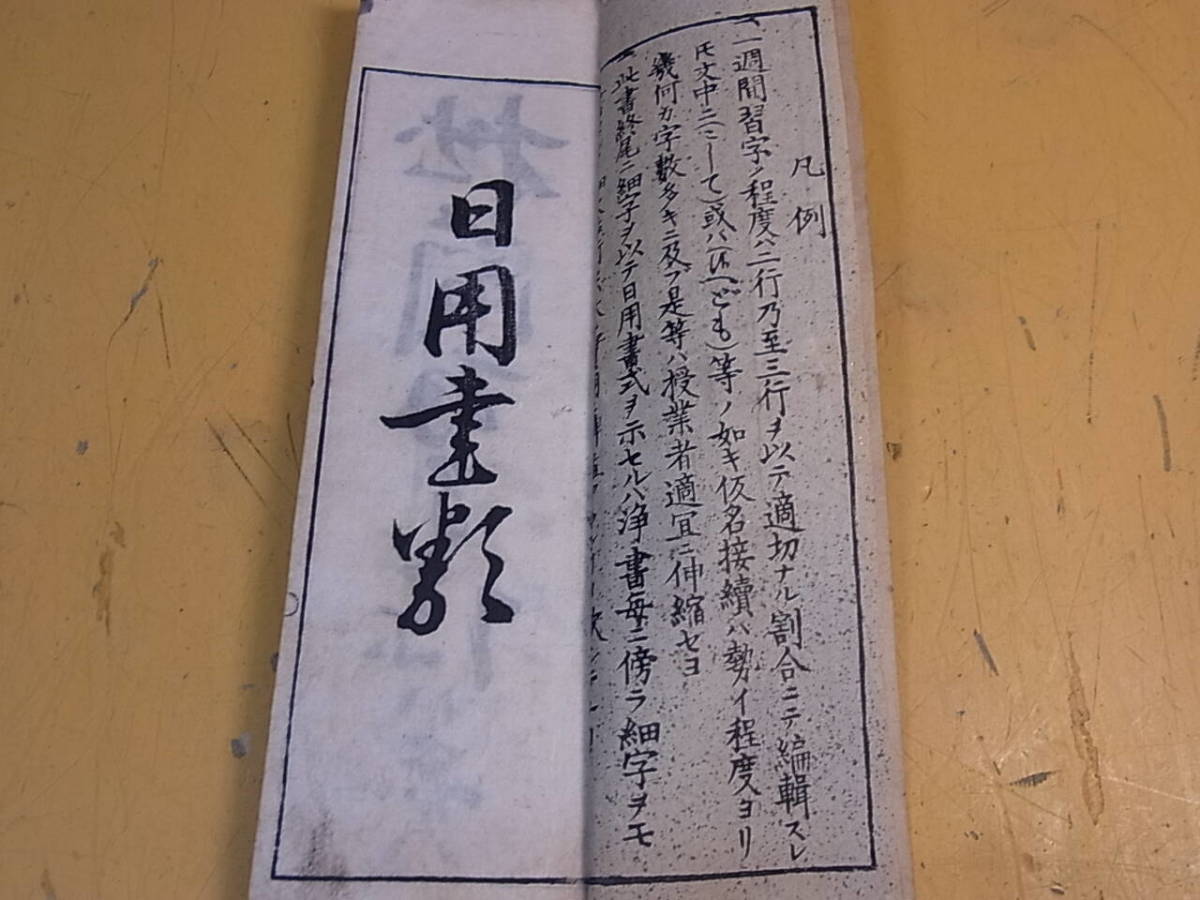 凡例
一 一週間習字ノ程度ハ二行乃至三行ヲ以テ適切ナル割合ニテ編輯スレ
モ文中ニ(して)或ハ(ども)等ノ如キ仮名接續ハ勢イ程度ヨリ
幾何カ字數多キニ及ブ是等ハ授業者適宜ニ伸縮セヨ
一 此書終尾ニ細字ヲ以テ日用書式ヲ示セルハ浄書毎ニ傍ラ細字ヲモ
日用書類